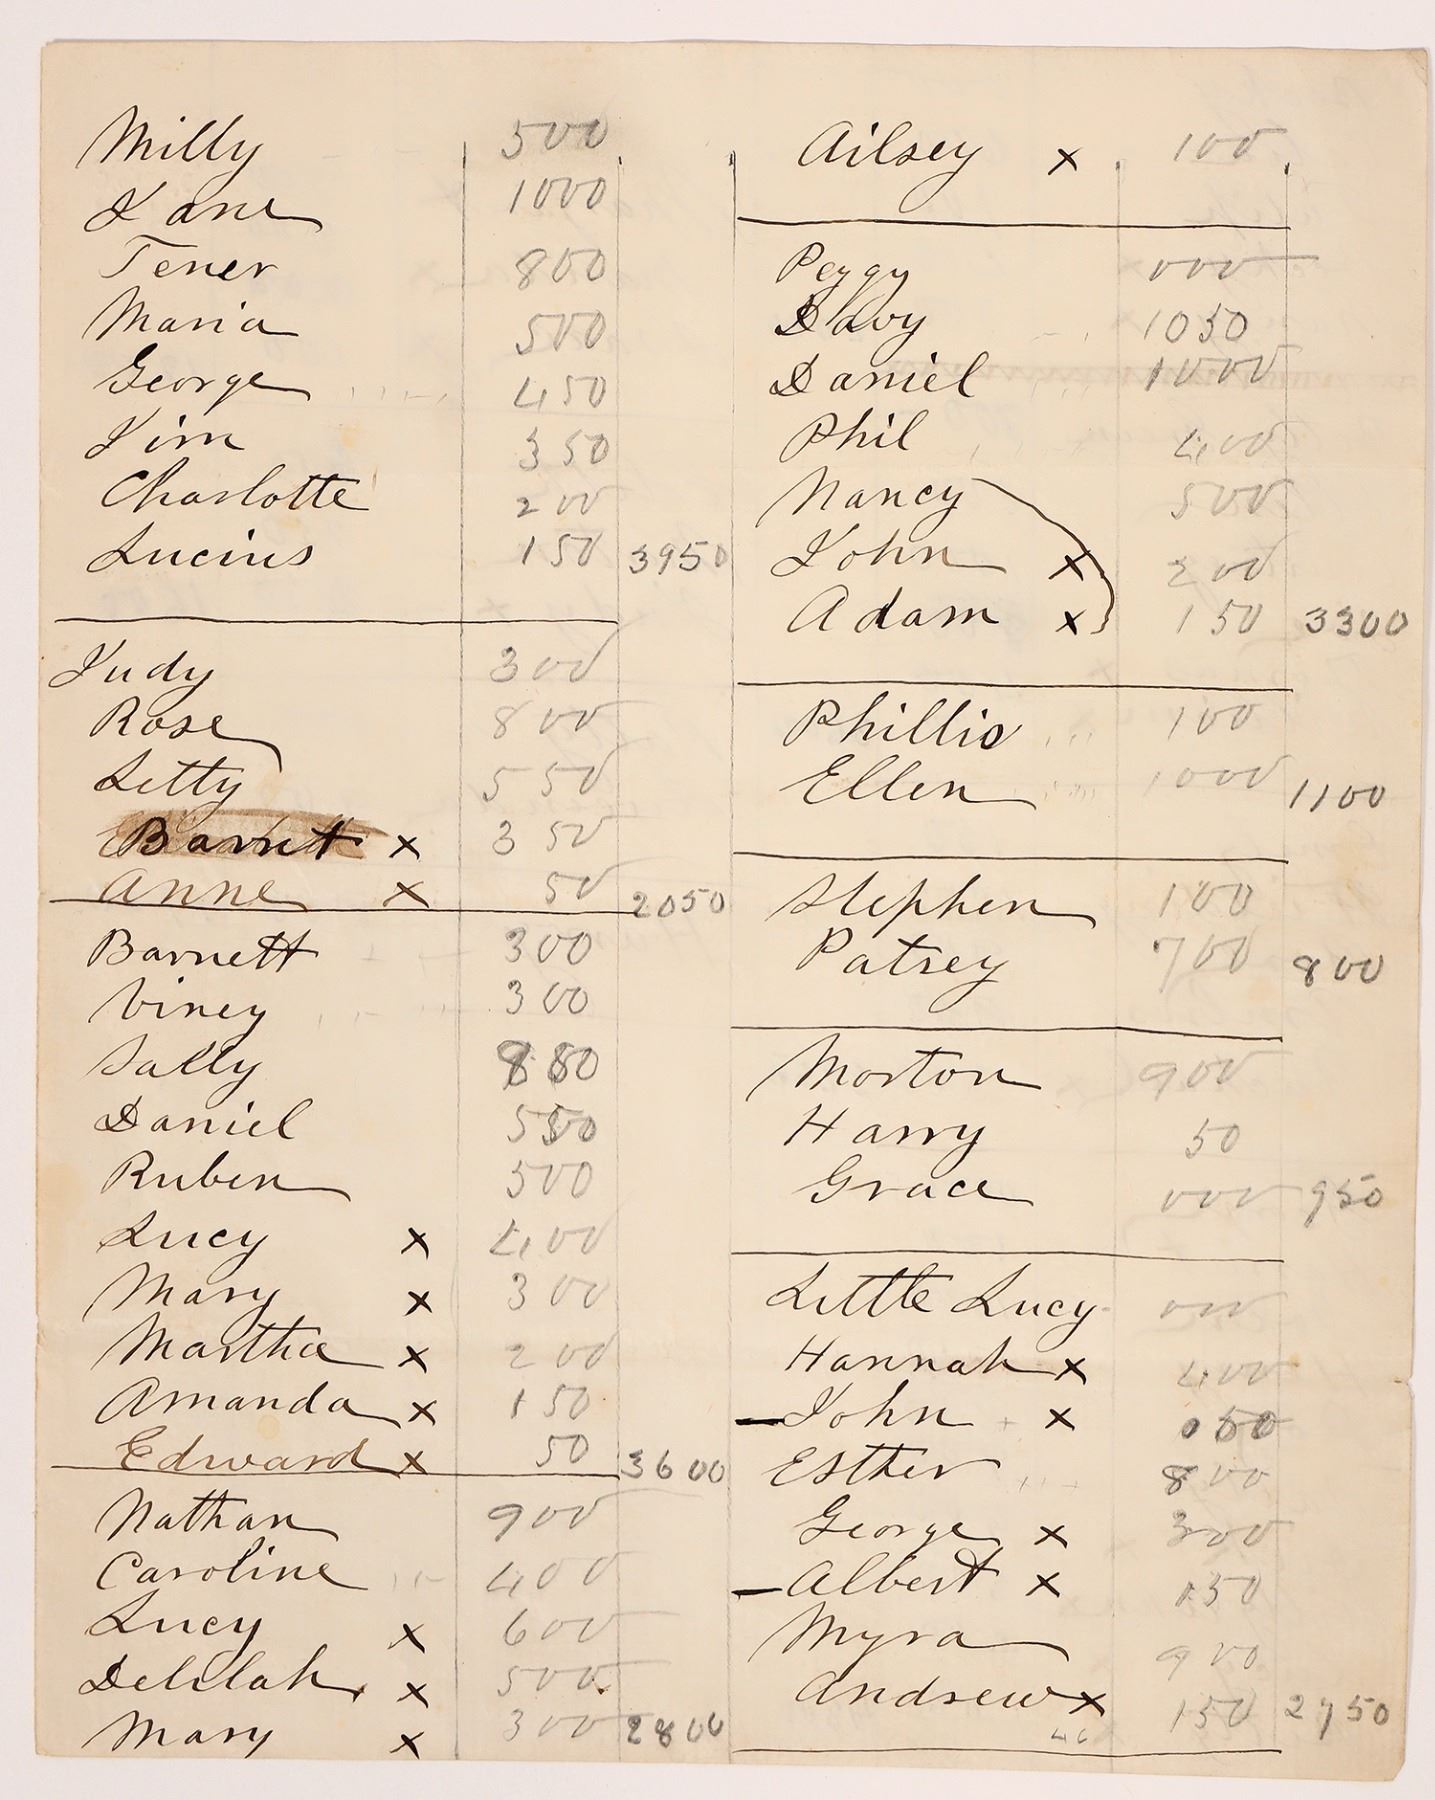 Milly 500
Jane 1000
Tener 800
Maria 500
George 450
Jim 350
Charlotte 200
Lucius 150 3950
Judy 300
Rose 800
Letty 550
Barnett x 350
Anne x 50 2050
Barnett 300
Viney 300
Sally 850
Daniel 550
Ruben 500
Lucy x 400
Mary x 300
Martha x 200
Amanda x 150
Edward x 50 3600
Nathan 900
Caroline 400
Lucy x 600
Delilah x 500
Mary x 300 2800
Ailsey x 100
Peggy 000
Davy 1050
Daniel 1000
Phil 400
Nancy 500
John x 200
Adam x 150 3300
Phillis 100
Ellen 1000 1100
Stephen 100
Patsey 700 800
Morton 900
Harry 50
Grace 000 950
Little Lucy 000
Hannah x 400
— John x 050
Esther 800
George x 300
— Albert x 150
Myra 900
Andrew x 150 2750
46